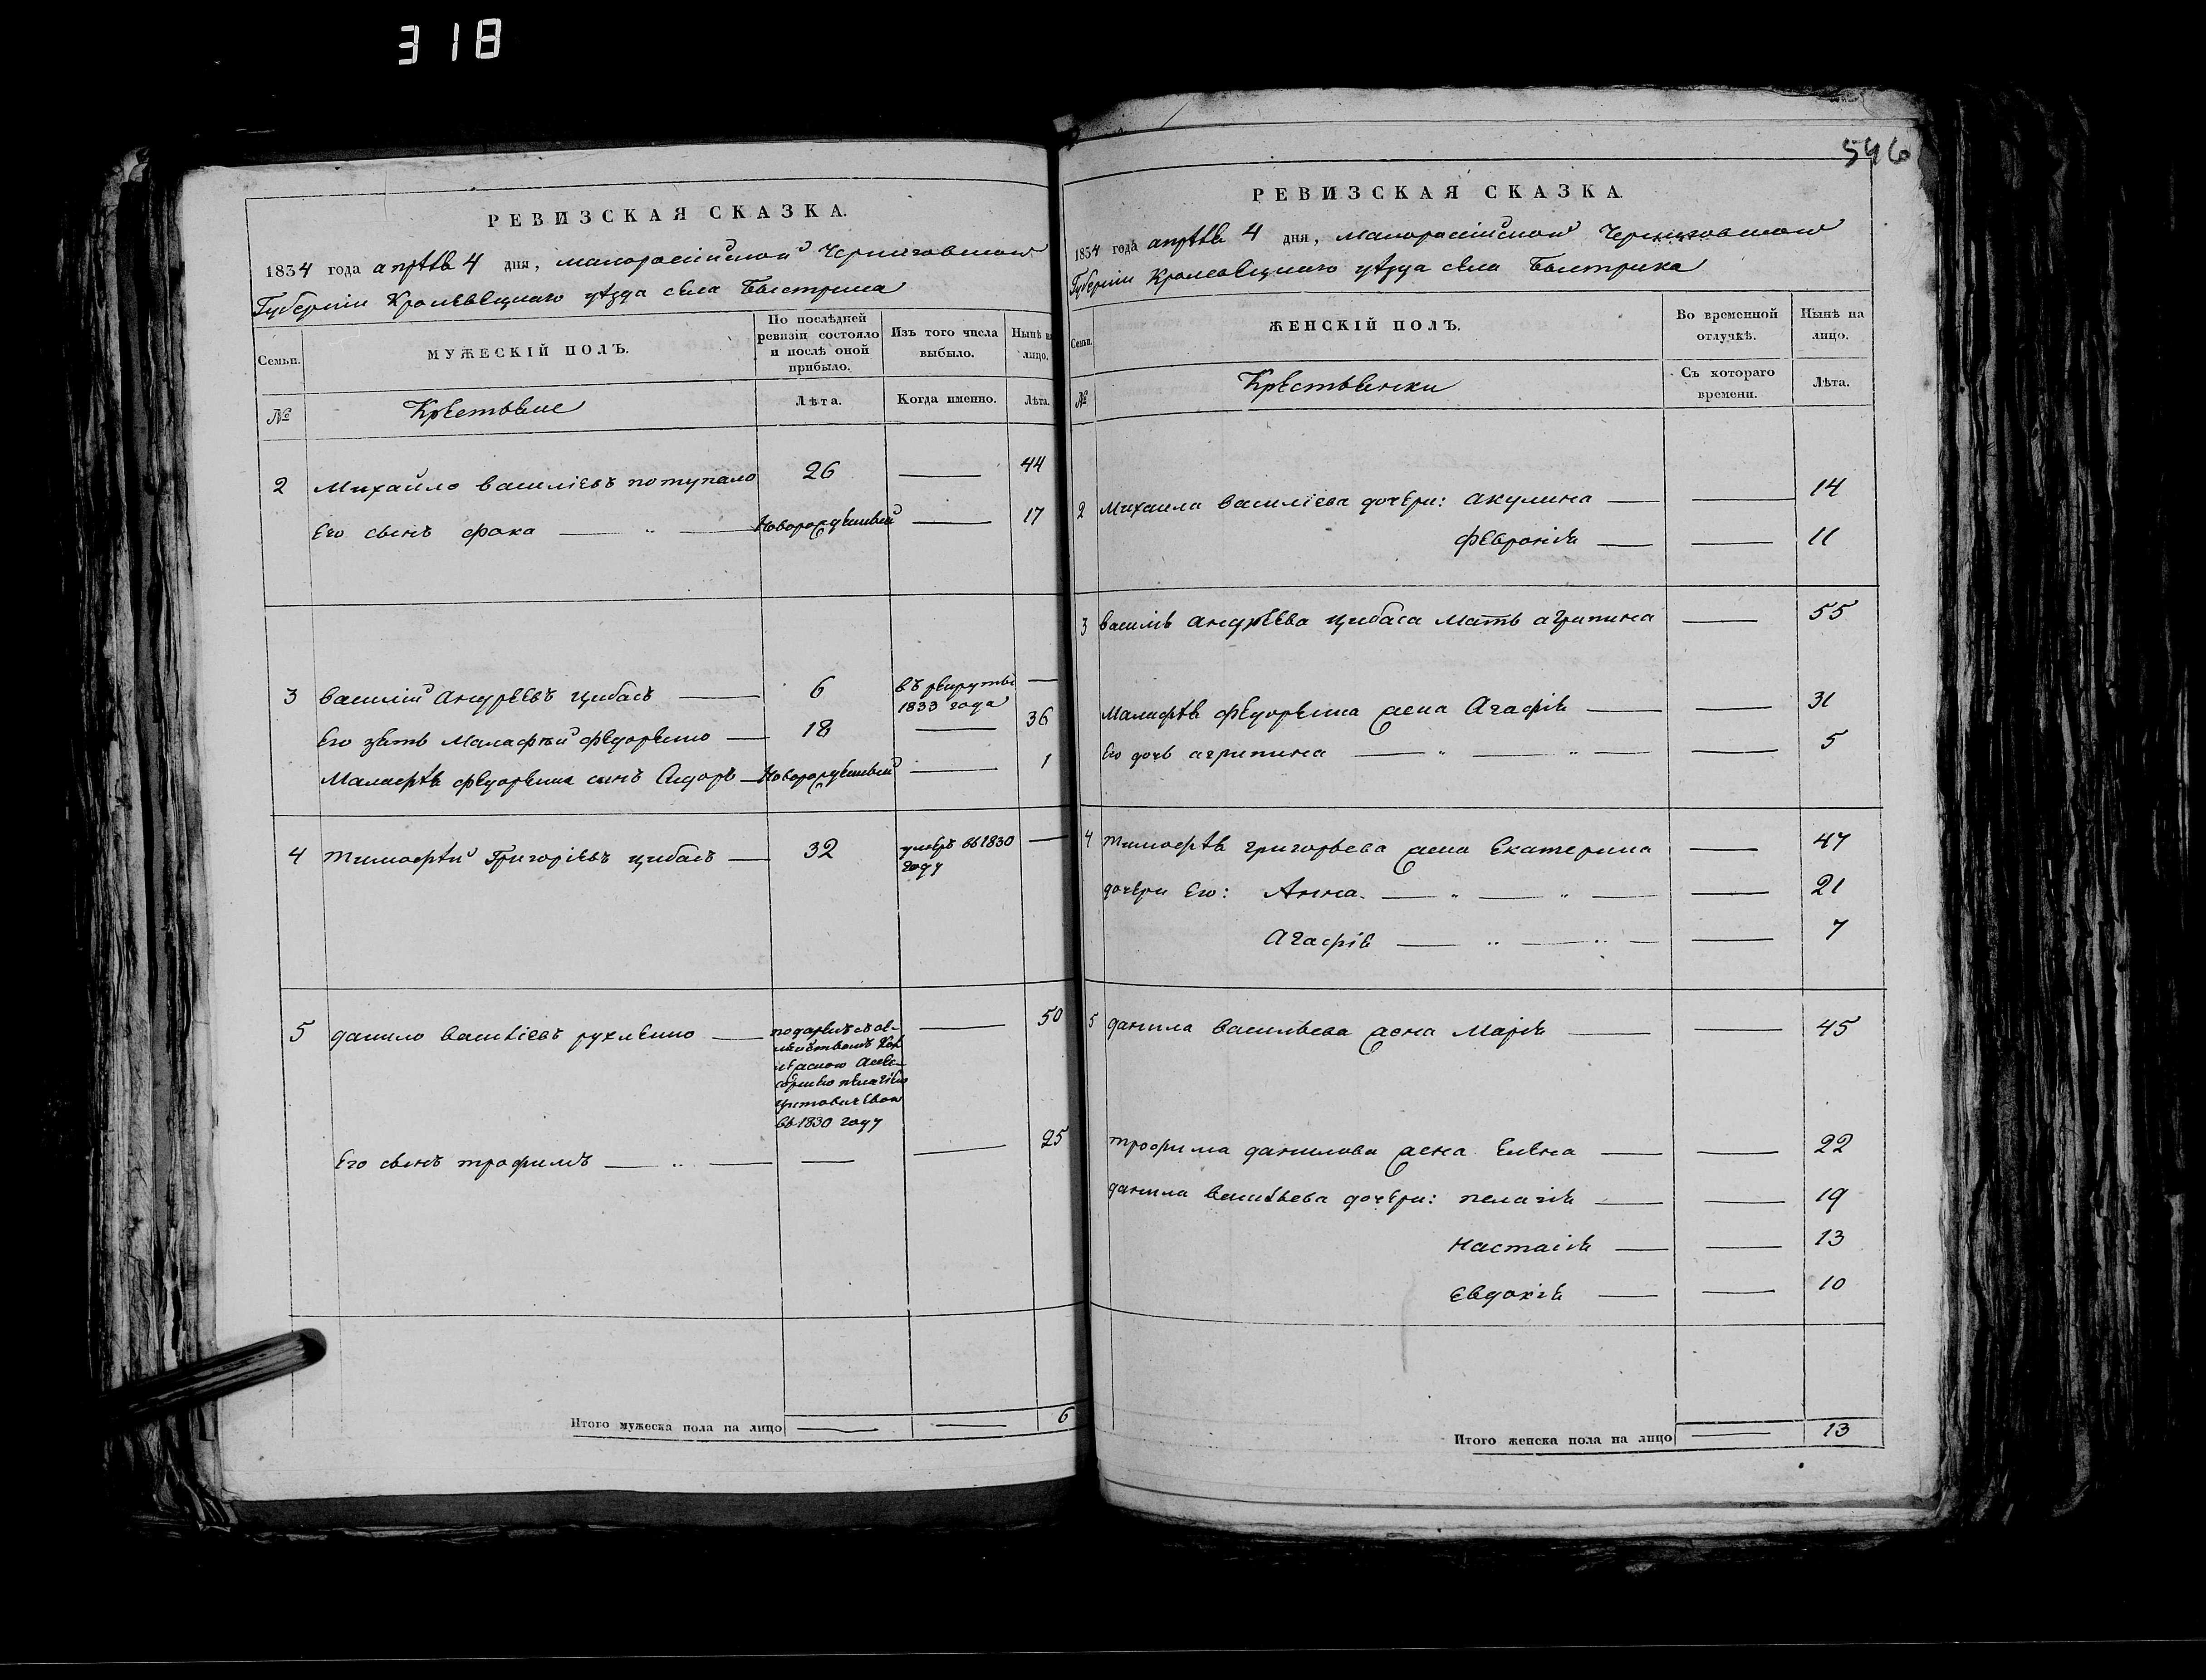 318
546
РЕВИЗСКАЯ СКАЗКА.
1834 года апрѣля 4 дня, малороссійской Черниговской
Губерніи Кролевецкаго уѣзда села Быстрика
Семьи.
МУЖЕСКІЙ ПОЛЪ.
По послѣдней ревизіи состояло и послѣ оной прибыло.
Изъ того числа выбыло.
Нынѣ на лицо.
№
Крестьяне
Лѣта.
Когда именно.
Лѣта.
2 Михайло василіевъ потупало 26 — 44
Его сынъ фока — Новорожденный — 17
3 василій Андреевъ цибасъ — 6 въ рекруты 1833 года —
Его зять Малафѣй федоренко — 18 — 36
Малафѣя федоренка сынъ Сидоръ — Новорожденный — 1
4 тимофѣй Григоріевъ цибасъ — 32 умеръ въ 1830 году —
5 данило василіевъ рухленко — — 50
въ 1830 году
Его сынъ трофимъ — — — 25
Итого мужеска пола на лицо — — 6
РЕВИЗСКАЯ СКАЗКА.
1834 года апрѣля 4 дня, малороссійской Черниговской
Губерніи Кролевецкаго уѣзда села Быстрика
Семьи.
ЖЕНСКІЙ ПОЛЪ.
Во временной отлучкѣ.
Нынѣ на лицо.
№
Крестьянки
Съ котораго времени.
Лѣта.
2 Михаила василіева дочери: акулина — — 14
февронія — — 11
3 василя андреева цибаса мать агрипина — 55
Малафѣя федоренка жена Агафія — — 31
Его дочь агрипина — — 5
4 тимофѣя григорьева жена Екатерина — 47
дочери Его: Анна. — — 21
Агафія — — 7
5 данила васильева жена Марія — — 45
трофима данилова жена Елена — — 22
данила васильева дочери: пелагія — — 19
настасія — — 13
Евдокія — — 10
Итого женска пола на лицо — 13